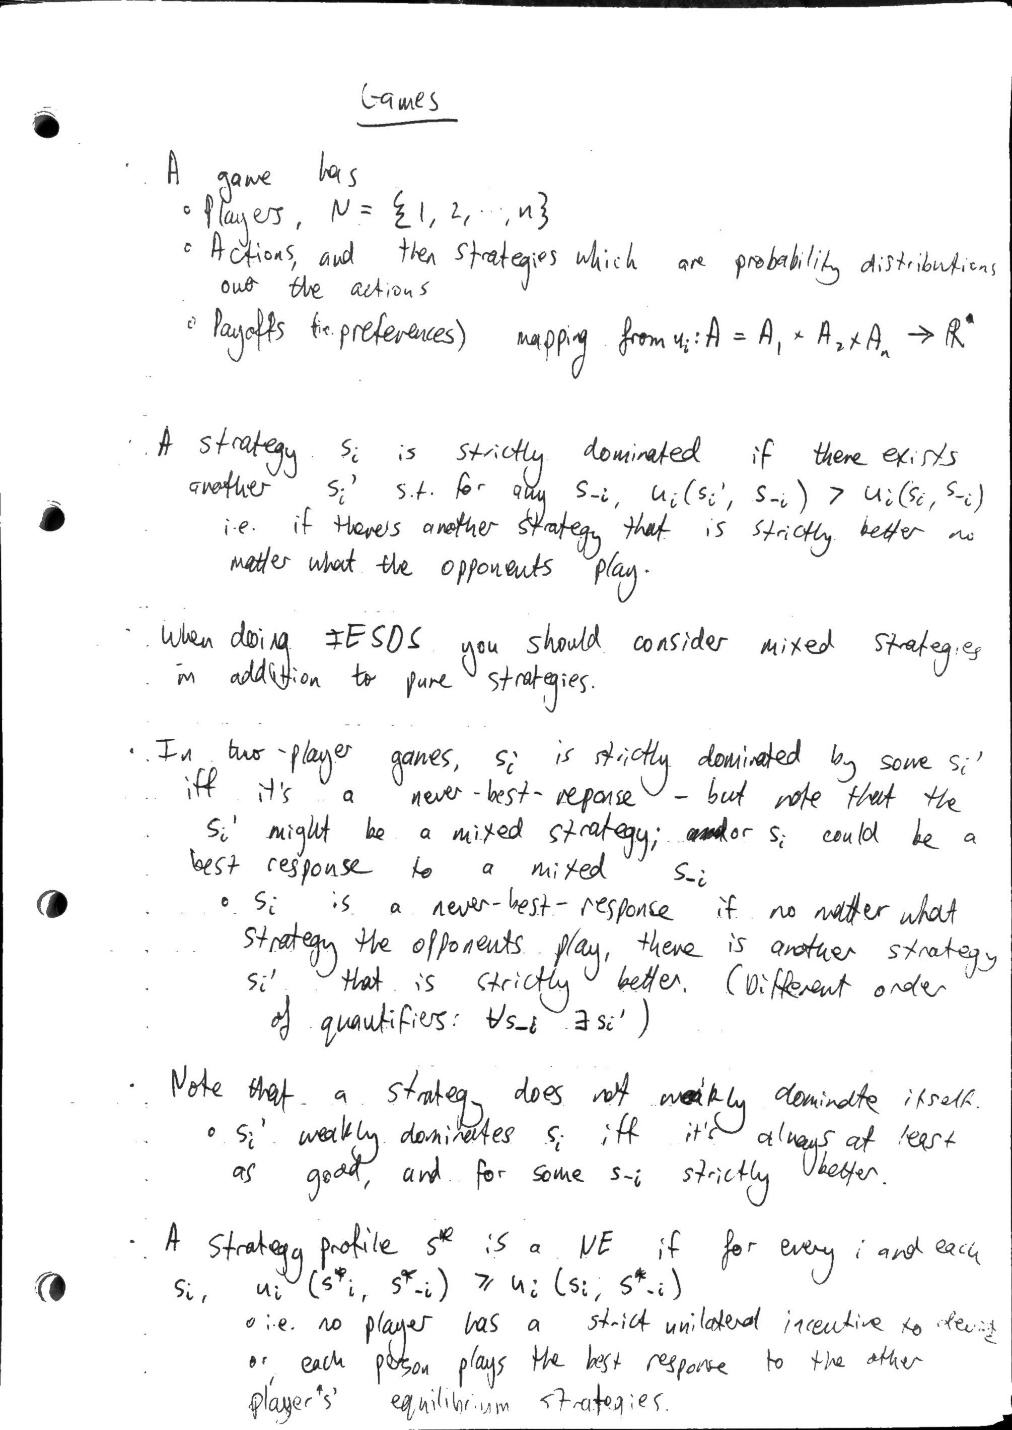 Games
· A game has
∘ Players, N = {1, 2, ..., n}
∘ Actions, and then strategies which are probability distributions
out the actions
∘ Payoffs (i.e. preferences) mapping from uᵢ: A = A₁ × A₂ × Aₙ → ℝ
· A strategy sᵢ is strictly dominated if there exists
another sᵢ' s.t. for any s₋ᵢ, uᵢ(sᵢ', s₋ᵢ) > uᵢ(sᵢ, s₋ᵢ)
i.e. if there's another strategy that is strictly better no
matter what the opponents play.
· When doing IESDS you should consider mixed strategies
in addition to pure strategies.
· In two-player games, sᵢ is strictly dominated by some sᵢ'
iff it's a never-best-reponse - but note that the
sᵢ' might be a mixed strategy; or sᵢ could be a
best response to a mixed s₋ᵢ
∘ sᵢ is a never-best-response if no matter what
strategy the opponents play, there is another strategy
sᵢ' that is strictly better. (Different order
of quantifiers: ∀s₋ᵢ ∃sᵢ')
· Note that a strategy does not weakly dominate itself.
∘ sᵢ' weakly dominates sᵢ iff it's always at least
as good, and for some s₋ᵢ strictly better.
· A strategy profile s* is a NE if for every i and each
sᵢ, uᵢ(s*ᵢ, s*₋ᵢ) ≥ uᵢ(sᵢ, s*₋ᵢ)
∘ i.e. no player has a strict unilateral incentive to
or each person plays the best response to the other
player's' equilibrium strategies.